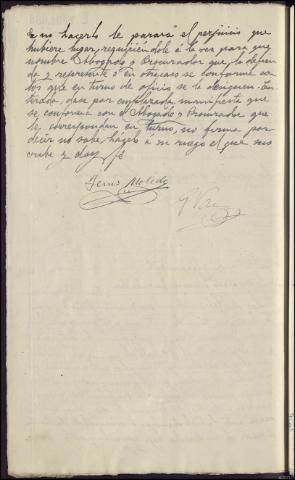 no hacerlo le parará el perjuicio que
hubiere lugar, requiriéndole á la vez para que
nombre Abogado y Procurador que la defienda
y represente ó en otro caso se conforme con
los que en turno de oficio se la designen. En-
terado, dase por emplazada, manifiesta que
se conforma con el Abogado y Procurador que
le correspondan en turno, no firma por
decir no saber, hágolo á su ruego el que sus-
cribe y doy fé